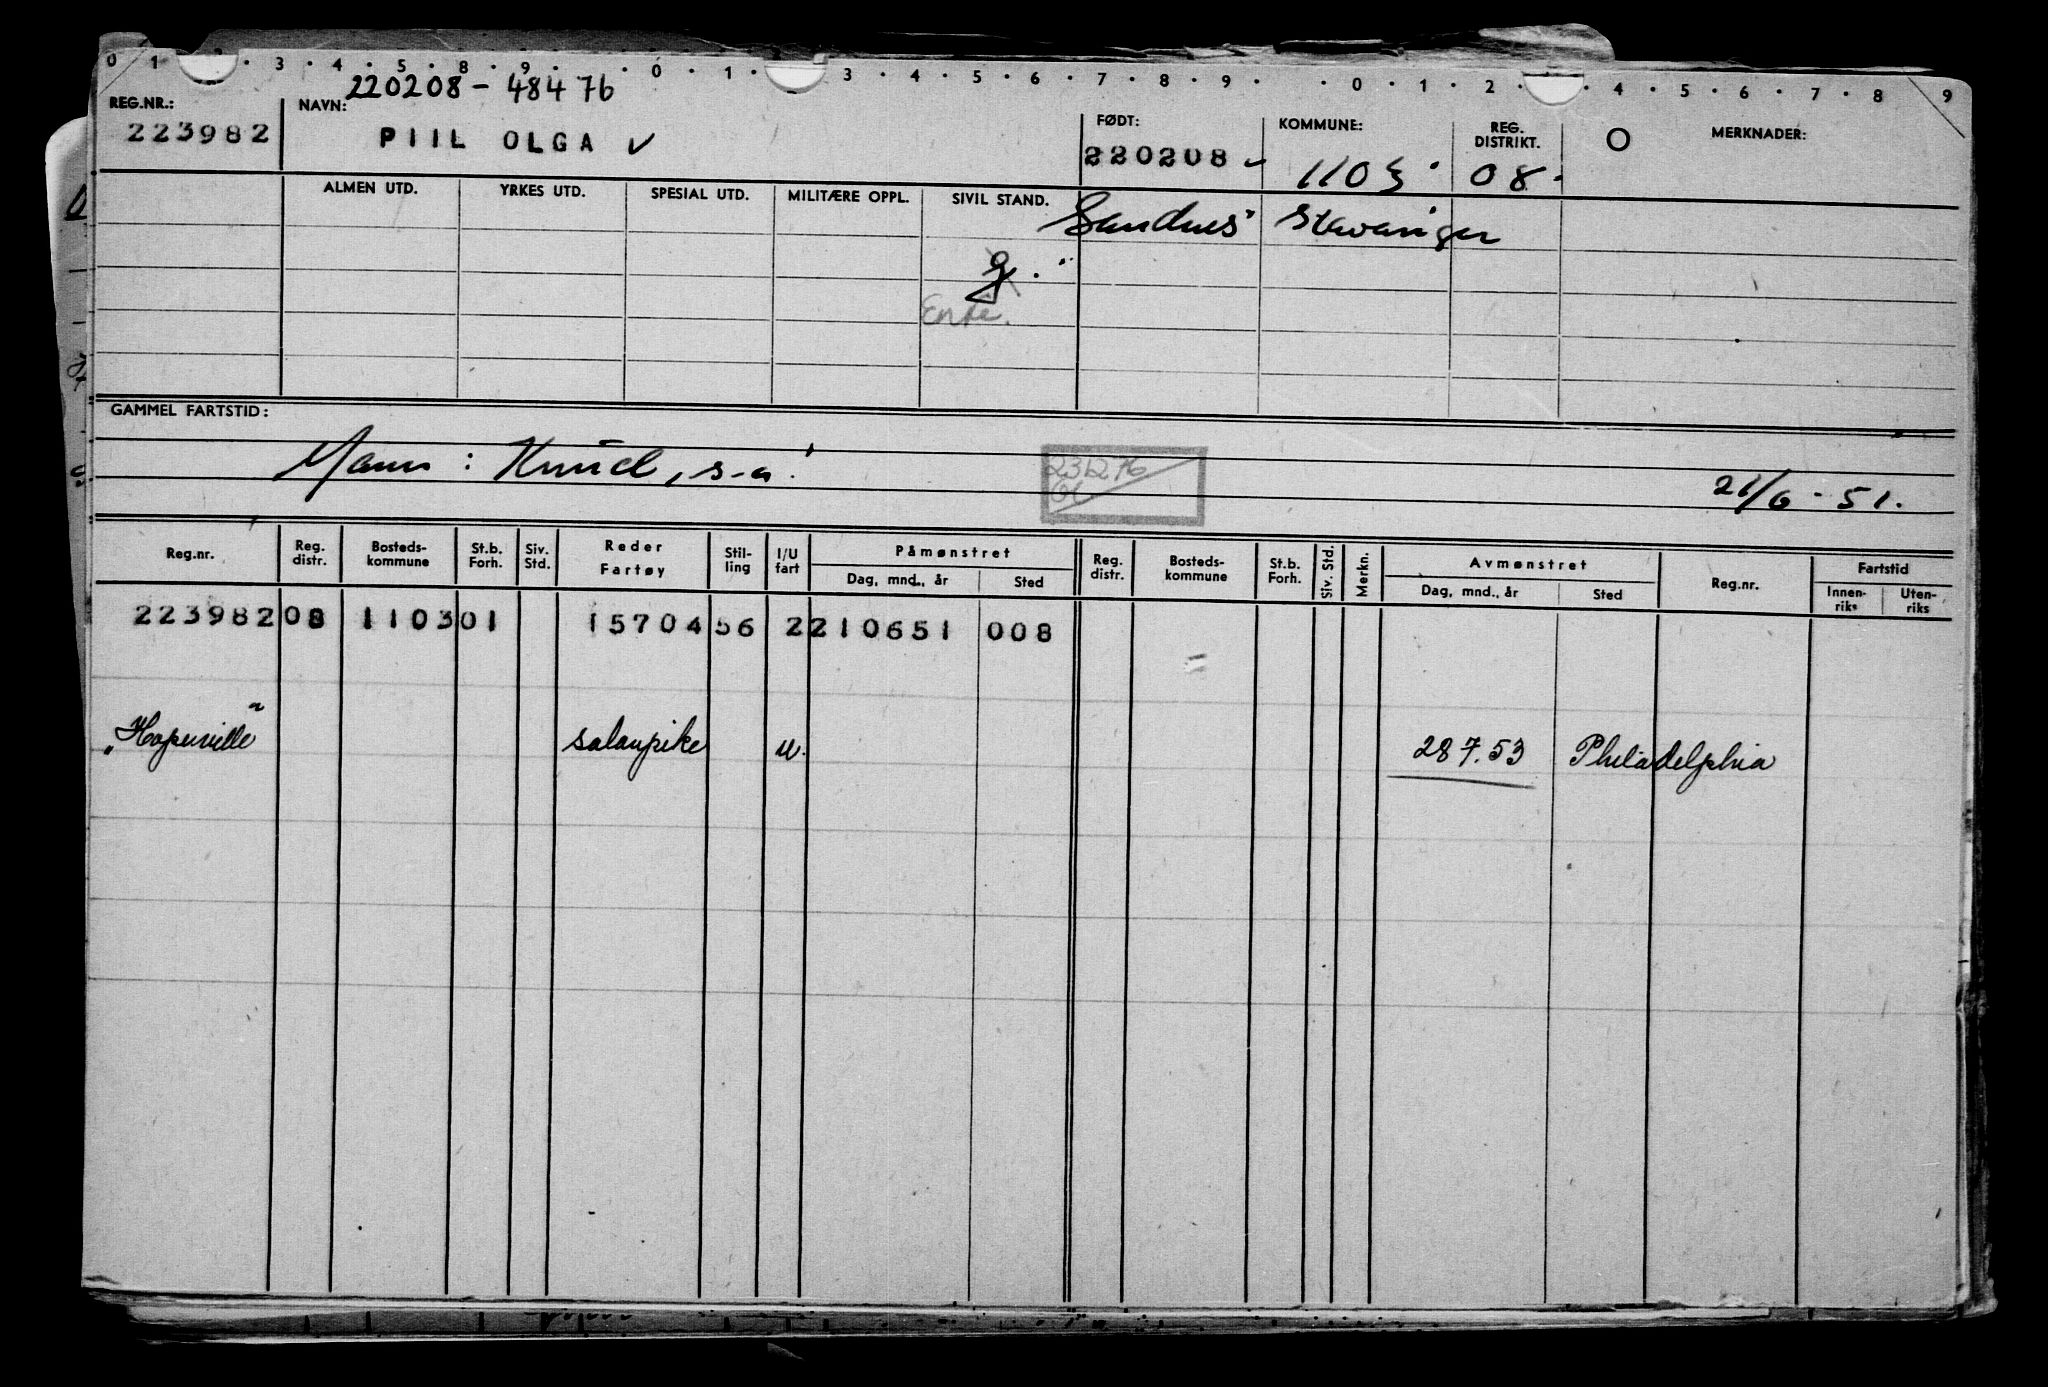 0 1 3 4 5 8 9 0 1 3 4 5 6 7 8 9 0 1 2 4 5 6 7 8 9
220208-48476
REG.NR.: NAVN: FØDT: KOMMUNE: REG. DISTRIKT. O MERKNADER:
223982 PIIL OLGA ✓ 220208 1103 08
ALMEN UTD. YRKES UTD. SPESIAL UTD. MILITÆRE OPPL. SIVIL STAND.
Sandnes Stavanger
g.
Enke.
GAMMEL FARTSTID:
Mann: Knud, s-a.
231276
21/6-51.
Reg.nr. Reg. distr. Bosteds-kommune St.b. Forh. Siv. Std. Reder Fartøy Stil-ling I/U fart Påmønstret Dag, mnd., år Sted Reg. distr. Bosteds-kommune St.b. Forh. Siv. Std. Merkn. Avmønstret Dag, mnd., år Sted Reg.nr. Fartstid Innen-riks Uten-riks
223982 08 1103 01 15704 56 2 210651 008
"Hopeville" salonpike u. 28 7.53 Philadelphia